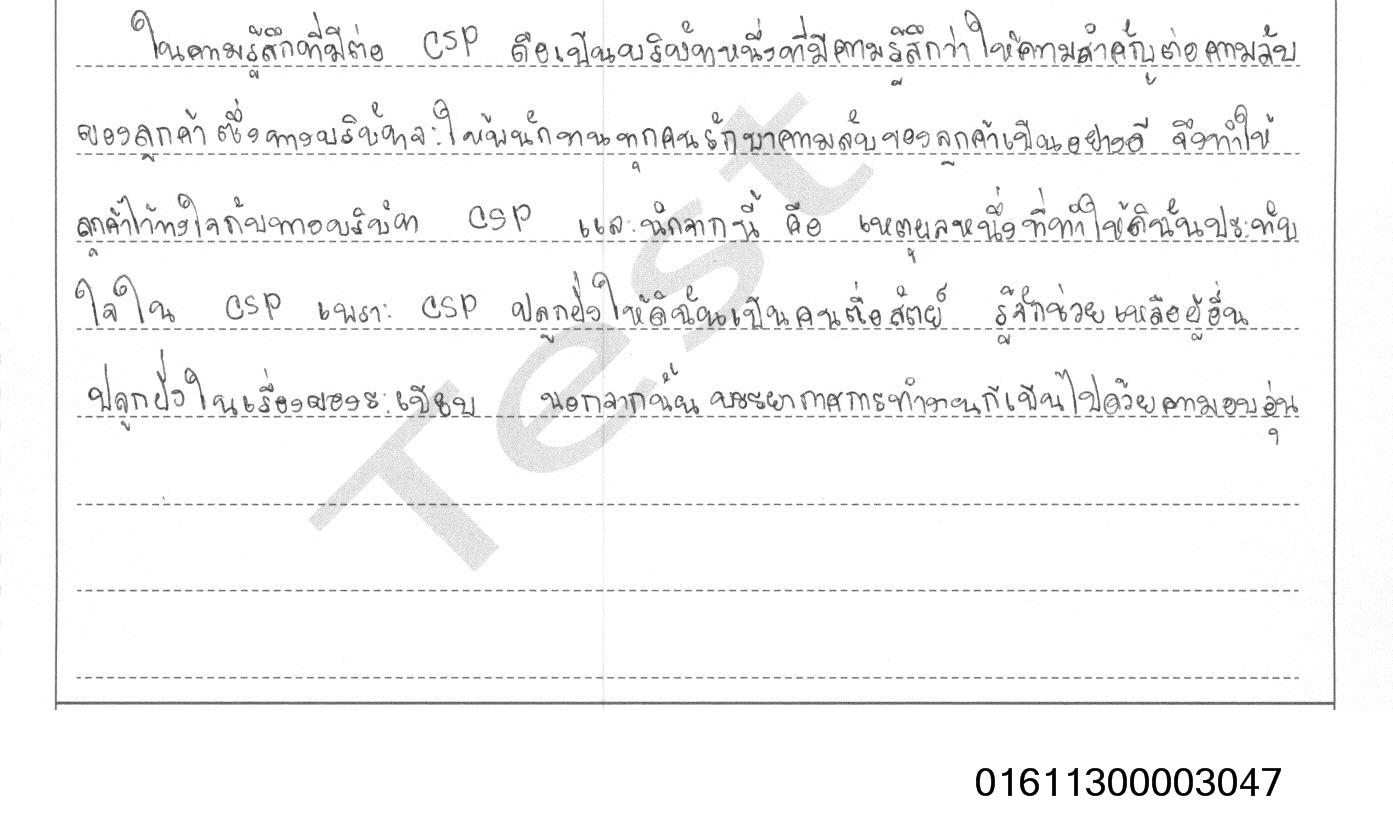 ในความรู้สึกที่มีต่อ CSP คือเป็นบริษัทหนึ่งที่มีความรู้สึกว่าให้ความสำคัญต่อความลับ
ของลูกค้า ซึ่งทางบริษัทจะให้พนักงานทุกคนรักษาความลับของลูกค้าเป็นอย่างดี จึงทำให้
ลูกค้าไว้วางใจกับทางบริษัท CSP และนักจากนี้ คือ เหตุผลหนึ่งที่ทำให้ดิฉันประทับ
ใจใน CSP เพราะ CSP ปลูกฝังให้ดิฉันเป็นคนซื่อสัตย์ รู้จักช่วยเหลือผู้อื่น
ปลูกฝังในเรื่องของระเบียบ นอกจากนั้น บรรยากาศการทำงานก็เป็นไปด้วยความอบอุ่น
Test
01611300003047